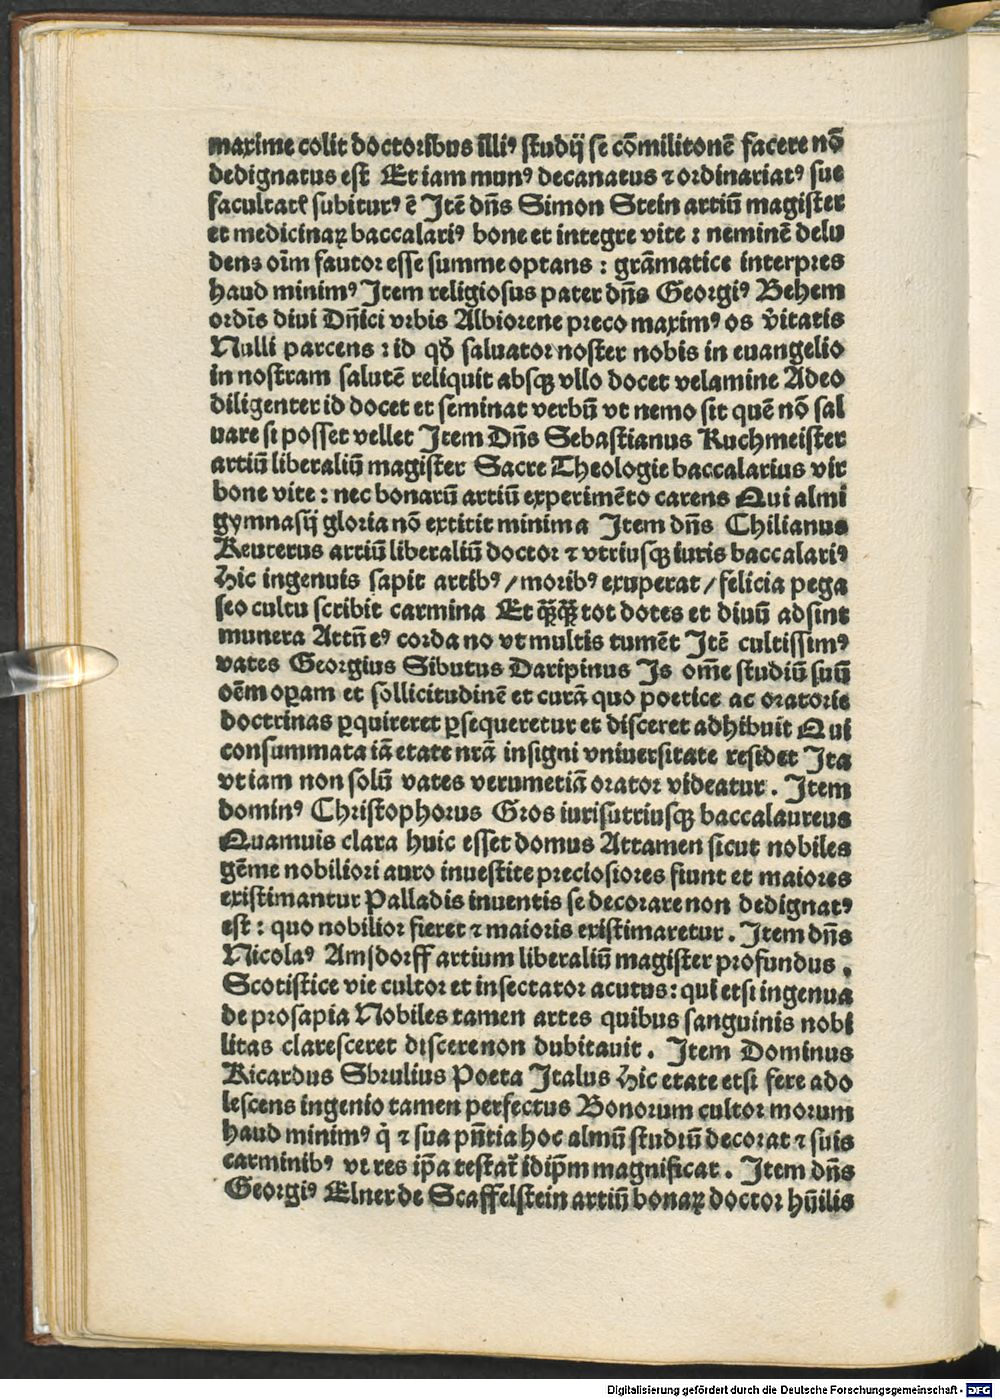 maxime colit doctoribus illiꝰ studij se cōmilitonē facere nō
dedignatus est Et iam munꝰ decanatus ⁊ ordinariatꝰ sue
facultatꝭ subiturꝰ ē Itē dn̄s Simon Stein artiū magister
et medicinaꝝ baccalariꝰ bone et integre vite : neminē delu
dens oīm fautor esse summe optans : grāmatice interpres
haud minimꝰ Item religiosus pater dn̄s Georgiꝰ Behem
ordīs diui Dn̄ici vrbis Albiorene preco maximꝰ os v̄itatis
Nulli parcens : id qđ saluator noster nobis in euangelio
in nostram salutē reliquit absqꝫ vllo docet velamine Adeo
diligenter id docet et seminat verbū vt nemo sit quē nō sal
uare si posset vellet Item Dn̄s Sebastianus Kuchmeister
artiū liberaliū magister Sacre Theologie baccalarius vir
bone vite : nec bonarū artiū experimēto carens Qui almi
gymnasij gloria nō extitit minima Item dn̄s Chilianus
Reuterus artiū liberaliū doctor ⁊ vtriusqꝫ iuris baccalariꝰ
Hic ingenuis sapit artibꝰ / moribꝰ exuperat / felicia pega
seo cultu scribit carmina Et qꝫ̄qꝫ̄ tot dotes et diuū adsint
munera Attn̄ eꝰ corda no vt multis tumēt Itē cultissimꝰ
vates Georgius Sibutus Daripinus Is om̄e studiū suū
oēm oꝑam et sollicitudinē et curā quo poetice ac oratorie
doctrinas ꝑquireret ꝑsequeretur et disceret adhibuit Qui
consummata iā etate nrā insigni vniuersitate residet Ita
vt iam non solū vates verumetiā orator videatur . Item
dominꝰ Christophorus Gros iurisutriusqꝫ baccalaureus
Quamuis clara huic esset domus Attamen sicut nobiles
gēme nobiliori auro inuestite preciosiores fiunt et maiores
existimantur Palladis inuentis se decorare non dedignatꝰ
est : quo nobilior fieret ⁊ maioris existimaretur . Item dn̄s
Nicolaꝰ Amsdorff artium liberaliū magister profundus .
Scotistice vie cultor et insectator acutus : qui etsi ingenua
de prosapia Nobiles tamen artes quibus sanguinis nobi
litas claresceret discere non dubitauit . Item Dominus
Ricardus Sbrulius Poeta Italus Hic etate etsi fere ado
lescens ingenio tamen perfectus Bonorum cultor morum
haud minimꝰ q̇ ⁊ sua pn̄tia hoc almū studiū decorat ⁊ suis
carminibꝰ vt res ip̄a testat᷑ idip̄m magnificat . Item dn̄s
Georgiꝰ Elner de Scaffelstein artiū bonaꝝ doctor hūilis
Digitalisierung gefördert durch die Deutsche Forschungsgemeinschaft - DFG